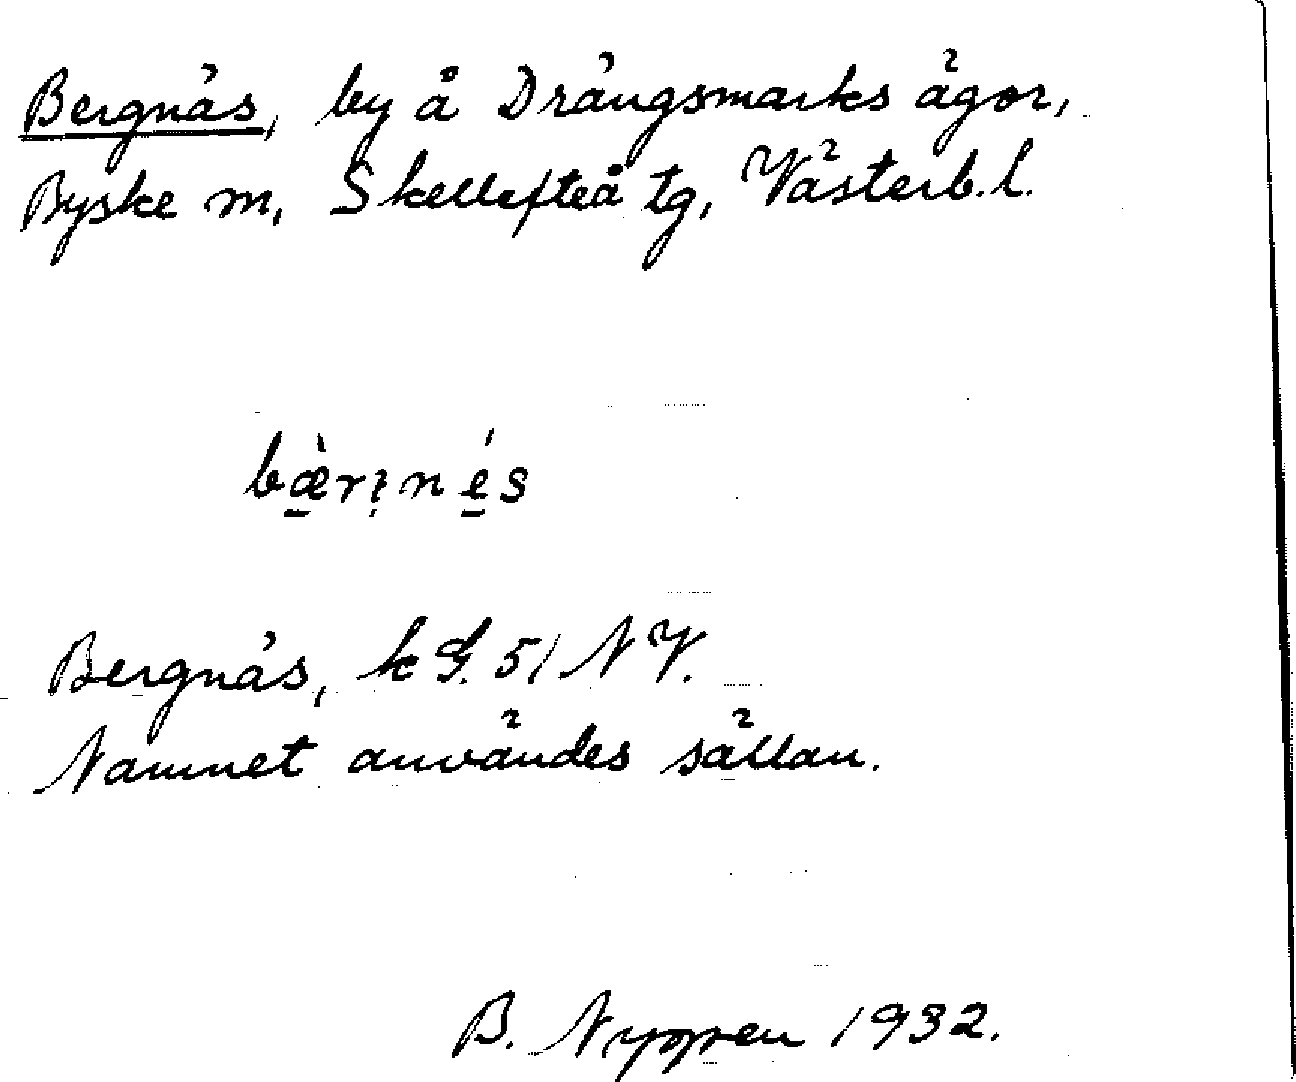 Bergnäs, by å Drängsmarks ägor,
Byske sn, Skellefteå tg, Västerb. l.
bæ̀rənés
Bergnäs, k G. 51 NV.
Namnet användes sällan.
B. 1932.